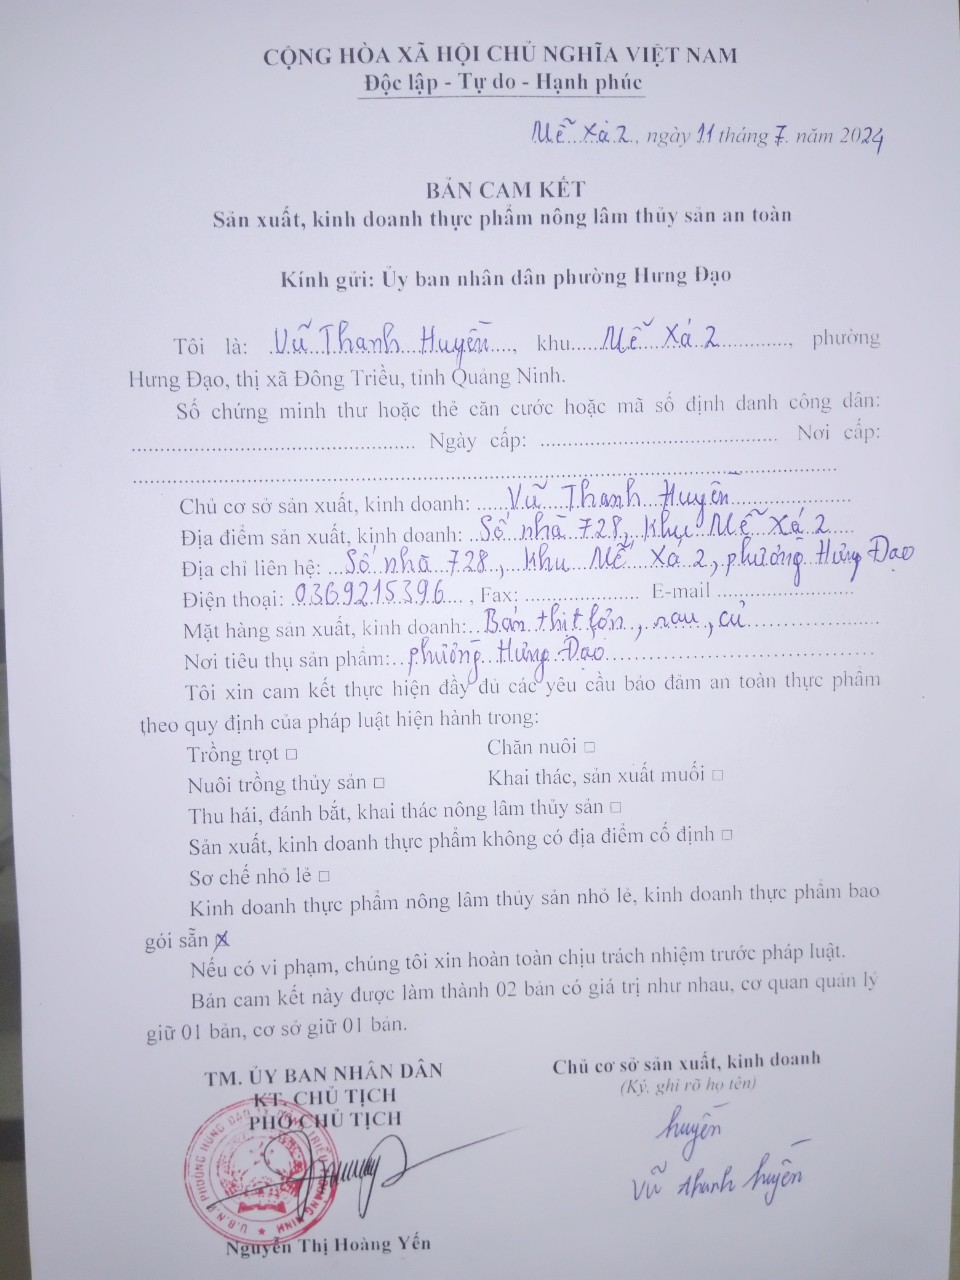 CỘNG HÒA XÃ HỘI CHỦ NGHĨA VIỆT NAM
Độc lập - Tự do - Hạnh phúc
Mễ Xá 2, ngày 11 tháng 7 năm 2024
BẢN CAM KẾT
Sản xuất, kinh doanh thực phẩm nông lâm thủy sản an toàn
Kính gửi: Ủy ban nhân dân phường Hưng Đạo
Tôi là: Vũ Thanh Huyền, khu Mễ Xá 2, phường
Hưng Đạo, thị xã Đông Triều, tỉnh Quảng Ninh.
Số chứng minh thư hoặc thẻ căn cước hoặc mã số định danh công dân:
Ngày cấp: Nơi cấp:
Chủ cơ sở sản xuất, kinh doanh: Vũ Thanh Huyền
Địa điểm sản xuất, kinh doanh: Số nhà 728, Khu Mễ Xá 2
Địa chỉ liên hệ: Số nhà 728, Khu Mễ Xá 2, phường Hưng Đạo
Điện thoại: 0369215396, Fax: E-mail
Mặt hàng sản xuất, kinh doanh: Bán thịt lợn, rau, củ
Nơi tiêu thụ sản phẩm: phường Hưng Đạo
Tôi xin cam kết thực hiện đầy đủ các yêu cầu bảo đảm an toàn thực phẩm
theo quy định của pháp luật hiện hành trong:
Trồng trọt □ Chăn nuôi □
Nuôi trồng thủy sản □ Khai thác, sản xuất muối □
Thu hái, đánh bắt, khai thác nông lâm thủy sản □
Sản xuất, kinh doanh thực phẩm không có địa điểm cố định □
Sơ chế nhỏ lẻ □
Kinh doanh thực phẩm nông lâm thủy sản nhỏ lẻ, kinh doanh thực phẩm bao
gói sẵn ☒
Nếu có vi phạm, chúng tôi xin hoàn toàn chịu trách nhiệm trước pháp luật.
Bản cam kết này được làm thành 02 bản có giá trị như nhau, cơ quan quản lý
giữ 01 bản, cơ sở giữ 01 bản.
TM. ỦY BAN NHÂN DÂN
KT. CHỦ TỊCH
PHÓ CHỦ TỊCH
Nguyễn Thị Hoàng Yến
Chủ cơ sở sản xuất, kinh doanh
(Ký, ghi rõ họ tên)
huyền
Vũ thanh huyền